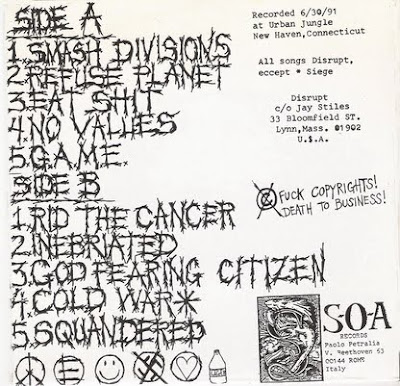 SIDE A
1. SMASH DIVISIONS
2. REFUSE PLANET
3. EAT SHIT
4. NO VALUES
5. GAME.
SIDE B
1. RID THE CANCER
2. INEBRIATED
3. GOD FEARING CITIZEN
4. COLD WAR*
5. SQUANDERED
Recorded 6/30/91
at Urban Jungle
New Haven,Connecticut
All songs Disrupt,
eccept * Siege
Disrupt
c/o Jay Stiles
33 Bloomfield ST.
Lynn,Mass. 01902
U.$.A.
FUCK COPYRIGHTS!
DEATH TO BUSINESS!
S·O·A
RECORDS
Paolo Petralia
V. Beethoven 63
00144 ROME
Italy